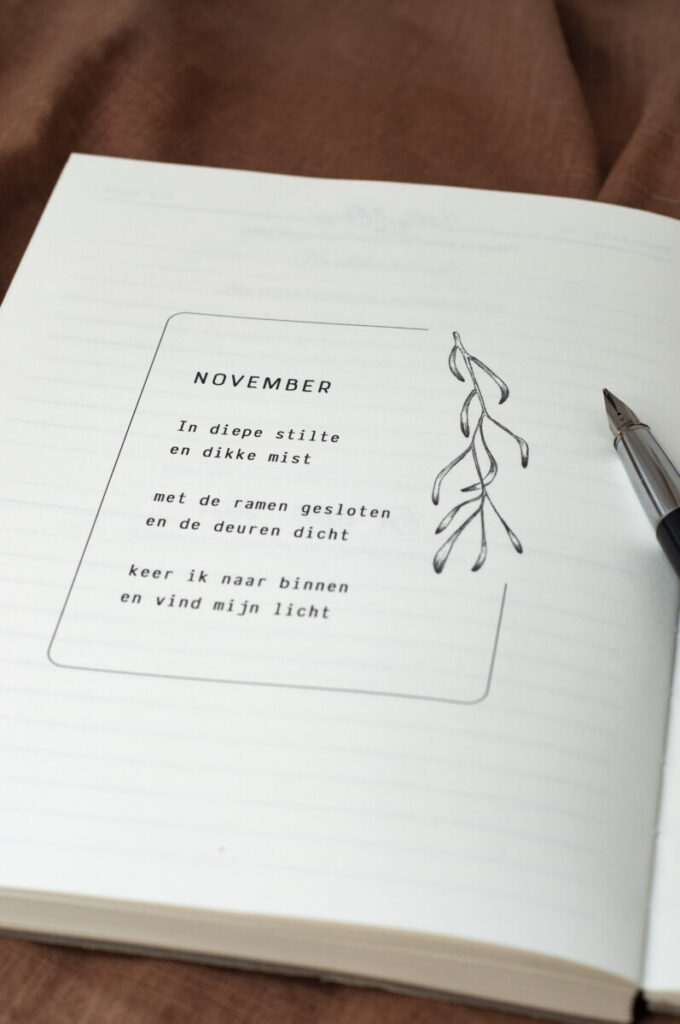 NOVEMBER
In diepe stilte
en dikke mist
met de ramen gesloten
en de deuren dicht
keer ik naar binnen
en vind mijn licht